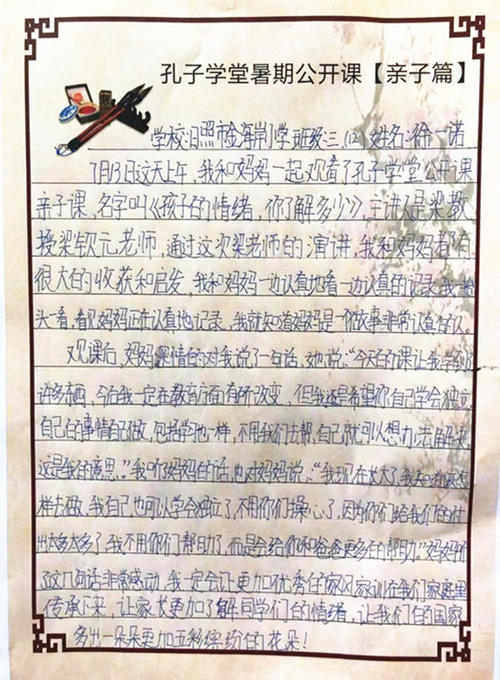 孔子学堂暑期公开课【亲子篇】
学校:日照市金海岸小学班级:三(12)姓名:徐一诺
7月13日这天上午,我和妈妈一起观看了孔子学堂公开课
亲子课,名字叫《孩子的情绪,你了解多少》,主讲人是梁教
授梁钦元老师,通过这次梁老师的演讲,我和妈妈都有
很大的收获和启发,我和妈妈一边认真地看一边认真的记录,我一抬
头一看,看见妈妈正在认真地记录,我就知道妈妈是一个做事非常认真的人。
观课后,妈妈深情的对我说了一句话,她说:“今天的课让我学到了
许多东西,今后我一定在教育方面有所改变,但我还是希望你自己学会独立
自己的事情自己做,包括学习也一样,不用我们去帮,自己就可以想办法解决
这是我的意思。”我听妈妈的话,也对妈妈说:“我现在长大了,我知道该怎
样去做,我自己也可以学会独立了,不用你们操心了,因为你们给我们的付
出太多太多了,我不用你们帮助了,而是会给你和爸爸更多的帮助”妈妈听
了这几句话非常感动,我一定会让更加优秀的家风家训在我们家庭里
传承下来,让家长更加了解同学们的情绪,让我们的国家
多出一朵朵更加五彩缤纷的花朵!